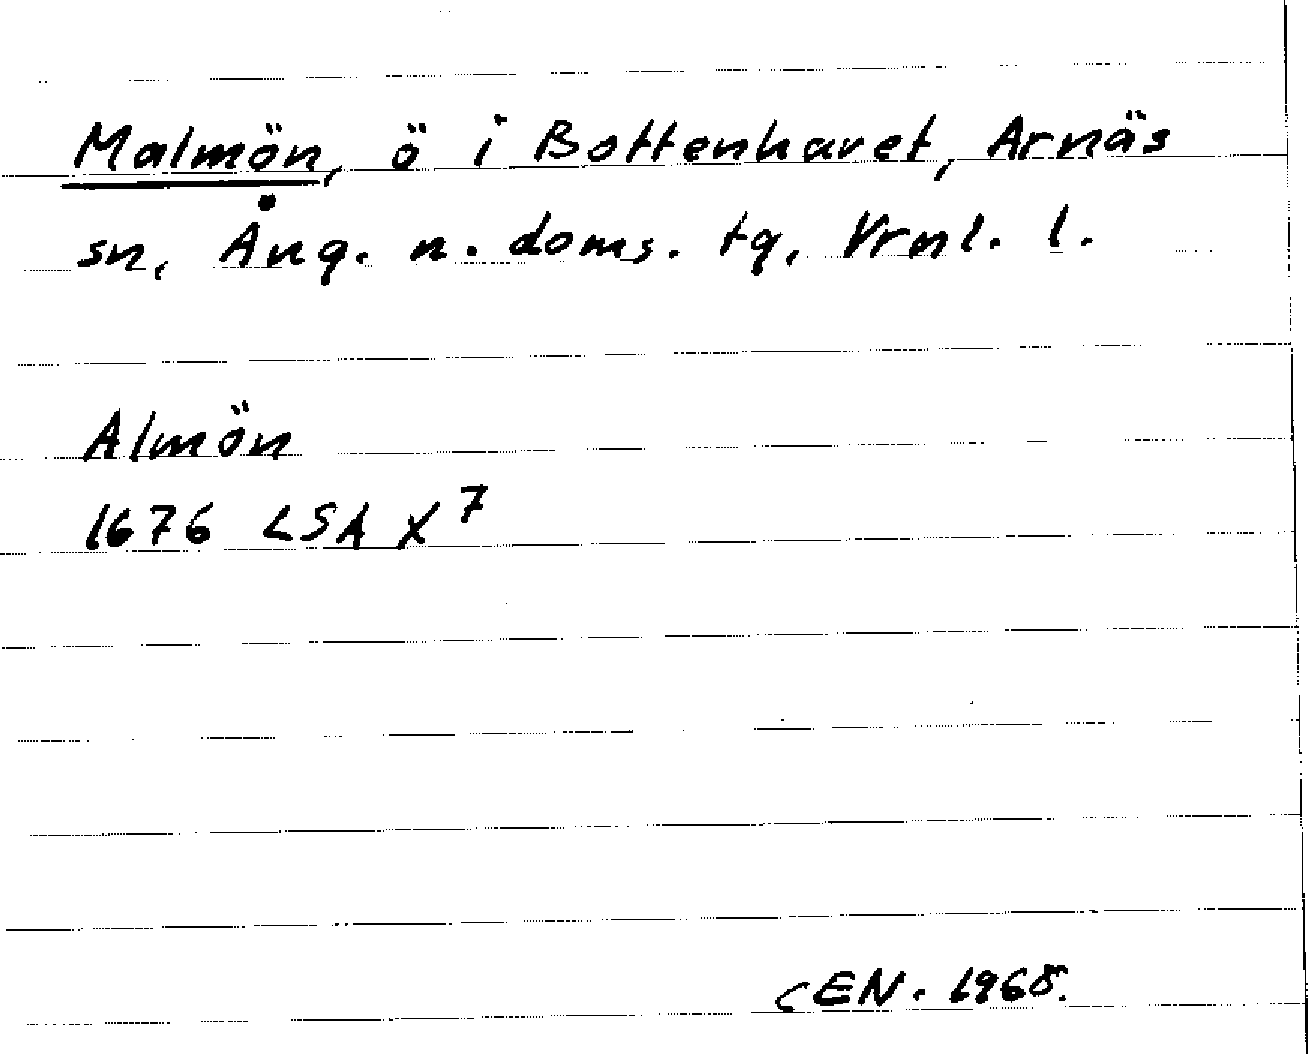 Malmön, ö i Bottenhavet, Arnäs
sn, Ång. n. doms. tg, Vrnl. l.
Almön
1676 LSA X 7
CEN. 1968.